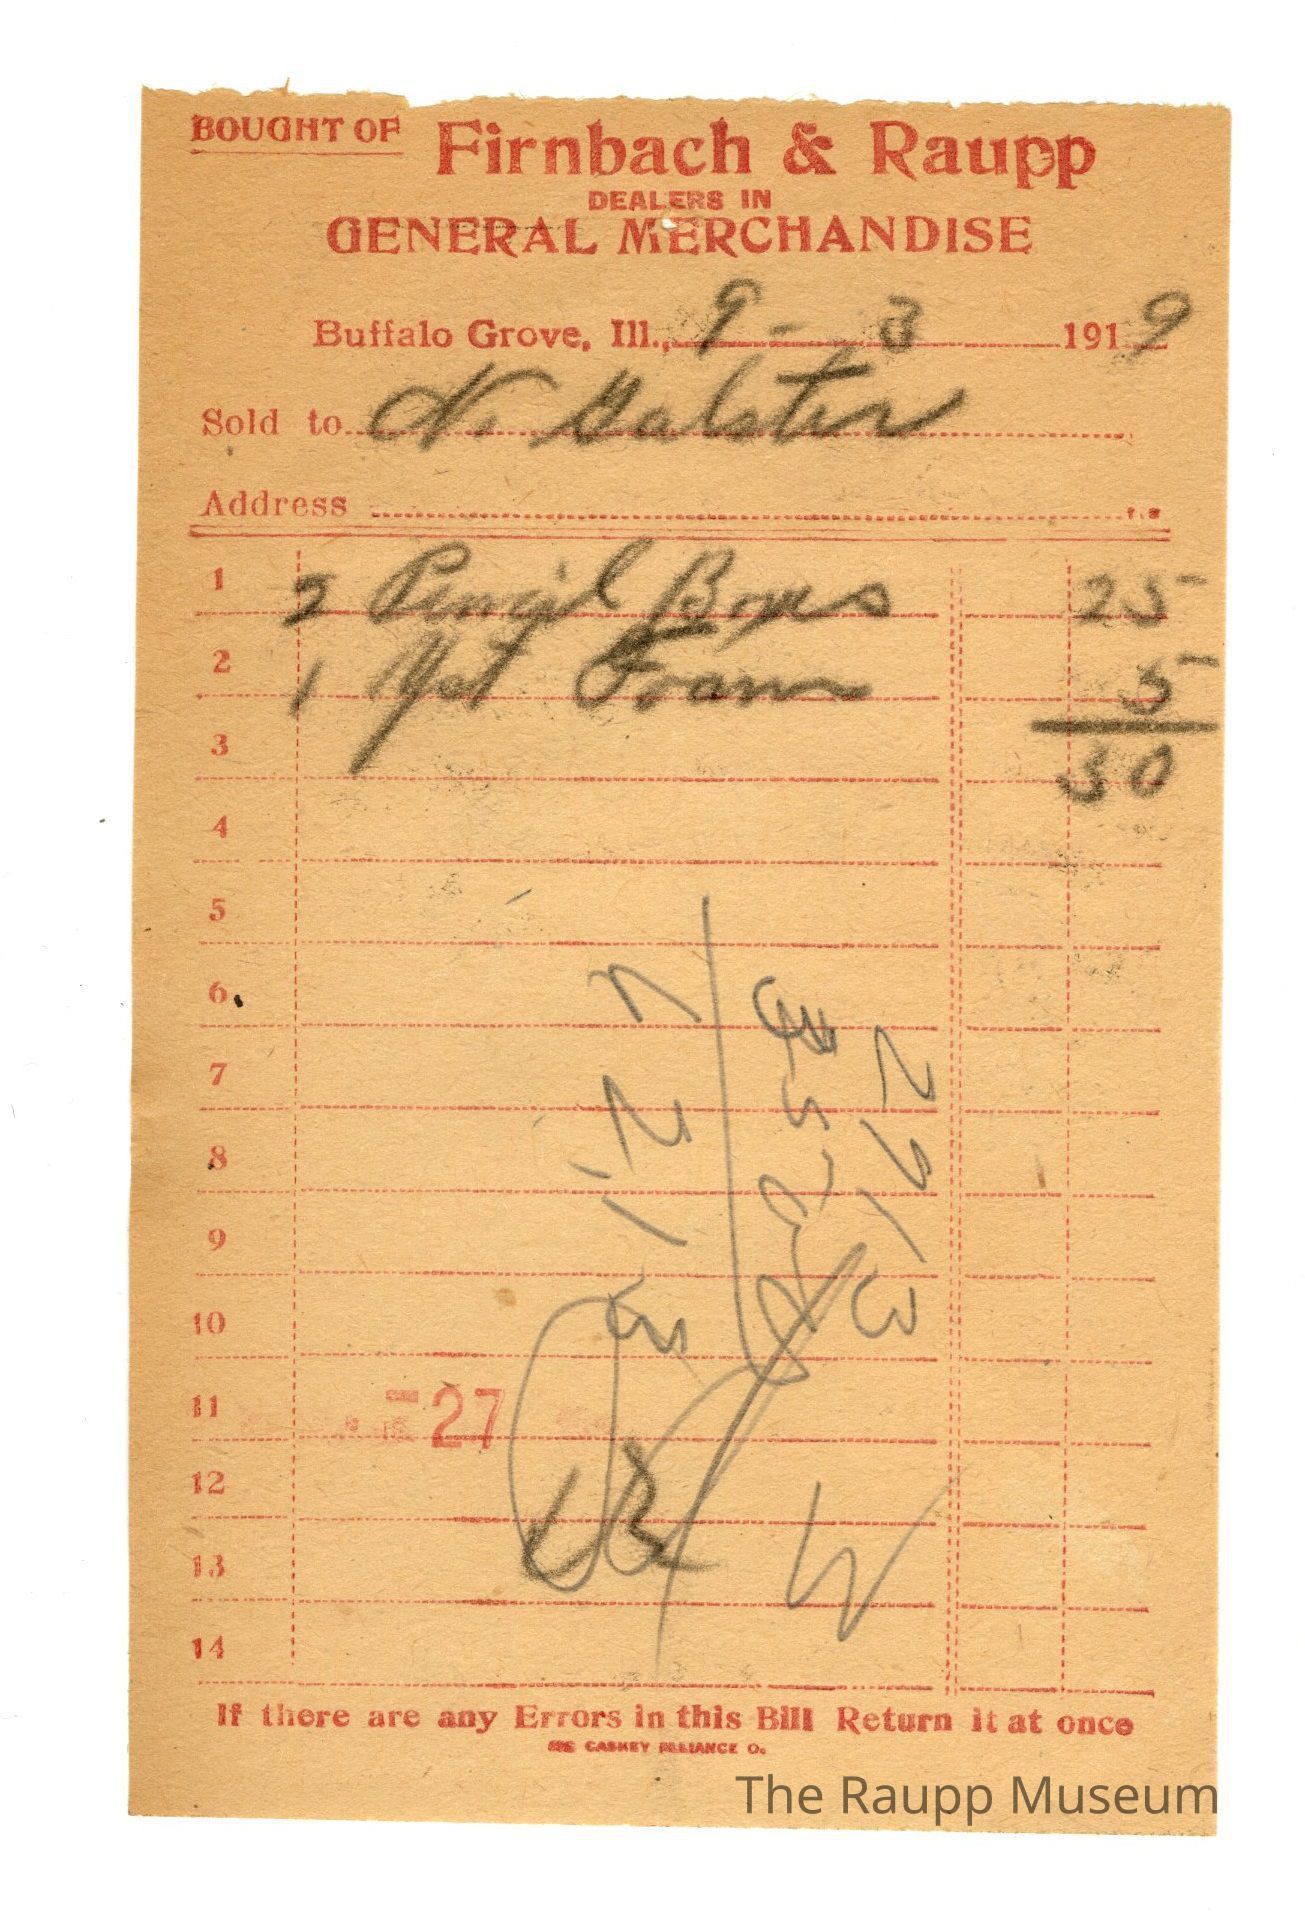 BOUGHT OF Firnbach & Raupp
DEALERS IN
GENERAL MERCHANDISE
Buffalo Grove, Ill., 9 - 3 1919
Sold to N. Galster
Address
1 2 Pencil Boxes 25-
2 1 Yst Foam 5-
3 30
4
5
6
7
8
9
10
11 27
12
13
14
2913
If there are any Errors in this Bill Return it at once
The Raupp Museum